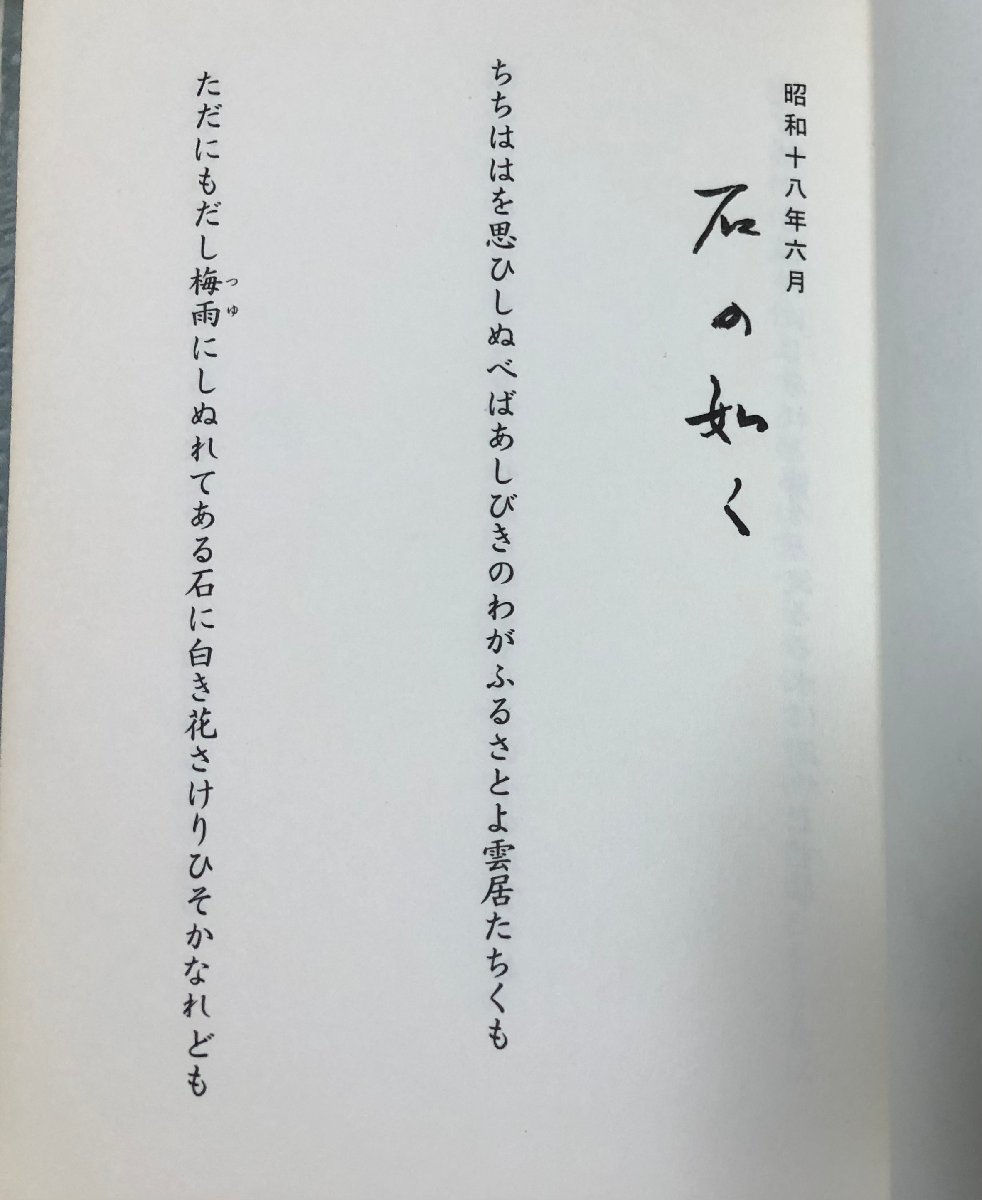 昭和十八年六月
石の如く
ちちははを思ひしぬべばあしびきのわがふるさとよ雲居たちくも
ただにもだし梅雨にしぬれてある石に白き花さけりひそかなれども
つゆ